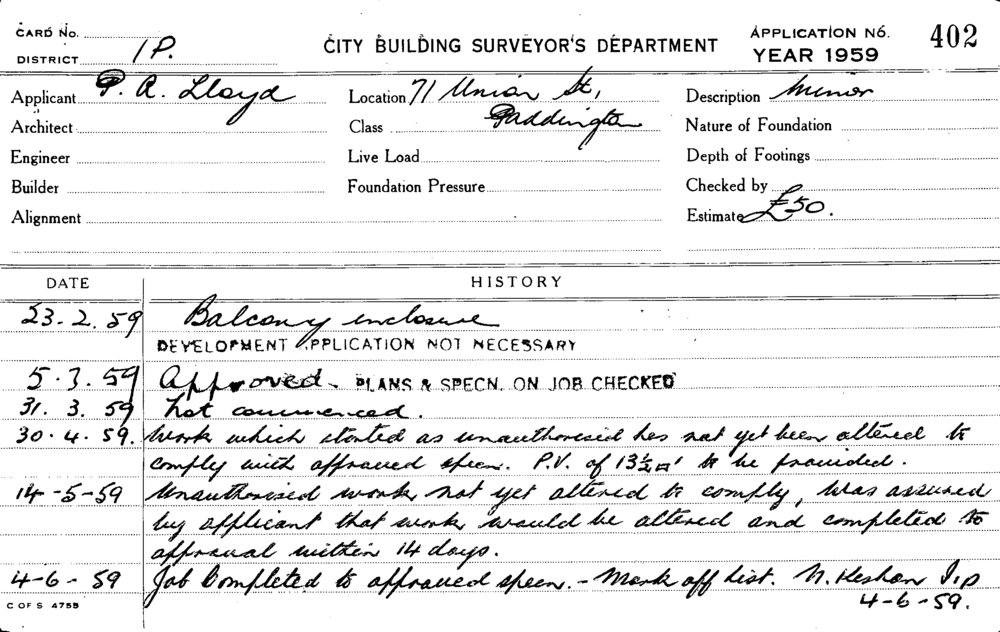 CARD No.
DISTRICT 1P.
CITY BUILDING SURVEYOR'S DEPARTMENT
APPLICATION No. 402
YEAR 1959
Applicant P. A. Lloyd
Location 71 Union St,
Description Minor
Architect
Class Paddington
Nature of Foundation
Engineer
Live Load
Depth of Footings
Builder
Foundation Pressure
Checked by
Alignment
Estimate £50.
DATE HISTORY
23.2.59 Balcony enclosure
DEVELOPMENT APPLICATION NOT NECESSARY
5.3.59 Approved. PLANS & SPECN. ON JOB CHECKED
31.3.59 Not commenced.
30.4.59. Work which started as unauthorised has not yet been altered to
comply with approved specn. P.V. of 13½□' to be provided.
14-5-59 Unauthorised work not yet altered to comply, Was assured
by applicant that work would be altered and completed to
approval within 14 days.
4-6-59 Job Completed to approved specn. - Mark off List. N.
4-6-59.
C OF S 4755